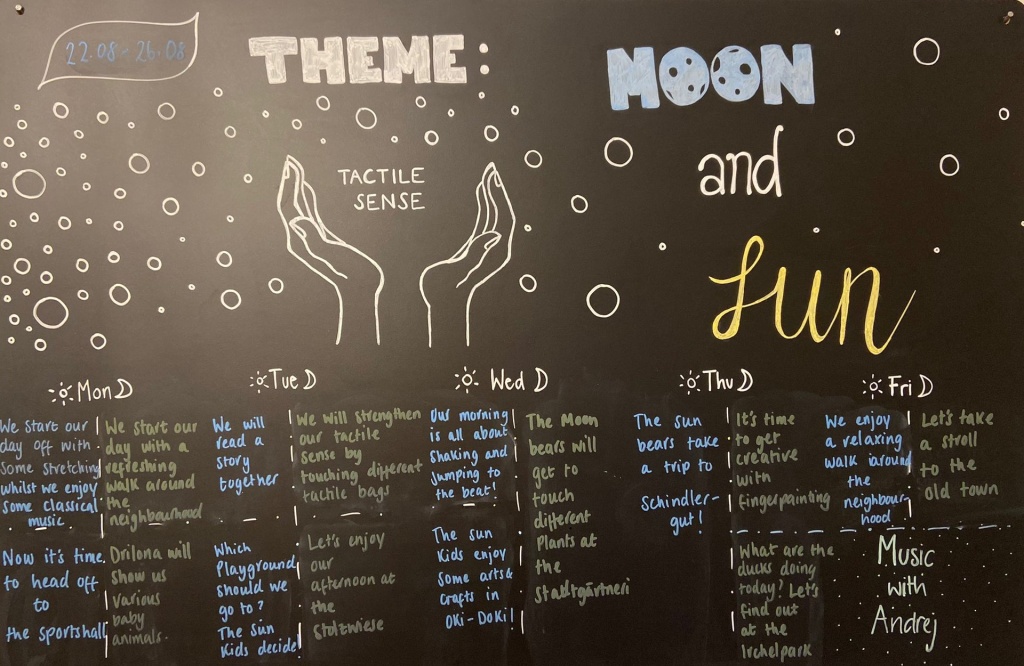 22.08 - 26.08
THEME:
MOON
and
Sun
TACTILE
SENSE
Mon
We start our
day off with
some stretching
whilst we enjoy
some classical
music
Now it's time
to head off
to
the sportshall
We start our
day with a
refreshing
walk around
the
neighbourhood
Drilona will
show us
various
baby
animals.
Tue
We will
read a
story
together
Which
Playground
should we
go to?
The Sun
Kids decide!
We will strengthen
our tactile
sense by
touching different
tactile bags
Let's enjoy
our
afternoon at
the
Stolzwiese
Wed
Our morning
is all about
shaking and
jumping to
the beat!
The sun
Kids enjoy
some arts &
crafts in
OKi-DoKi!
The Moon
bears will
get to
touch
different
Plants at
the
stadtgärtneri
Thu
The sun
bears take
a trip to
Schindler-
gut!
It's time
to get
creative
with
fingerpainting
What are the
ducks doing
today? Let's
find out
at the
Irchelpark
Fri
We enjoy
a relaxing
walk around
the
neighbour-
hood
Let's take
a stroll
to the
old town
Music
with
Andrej